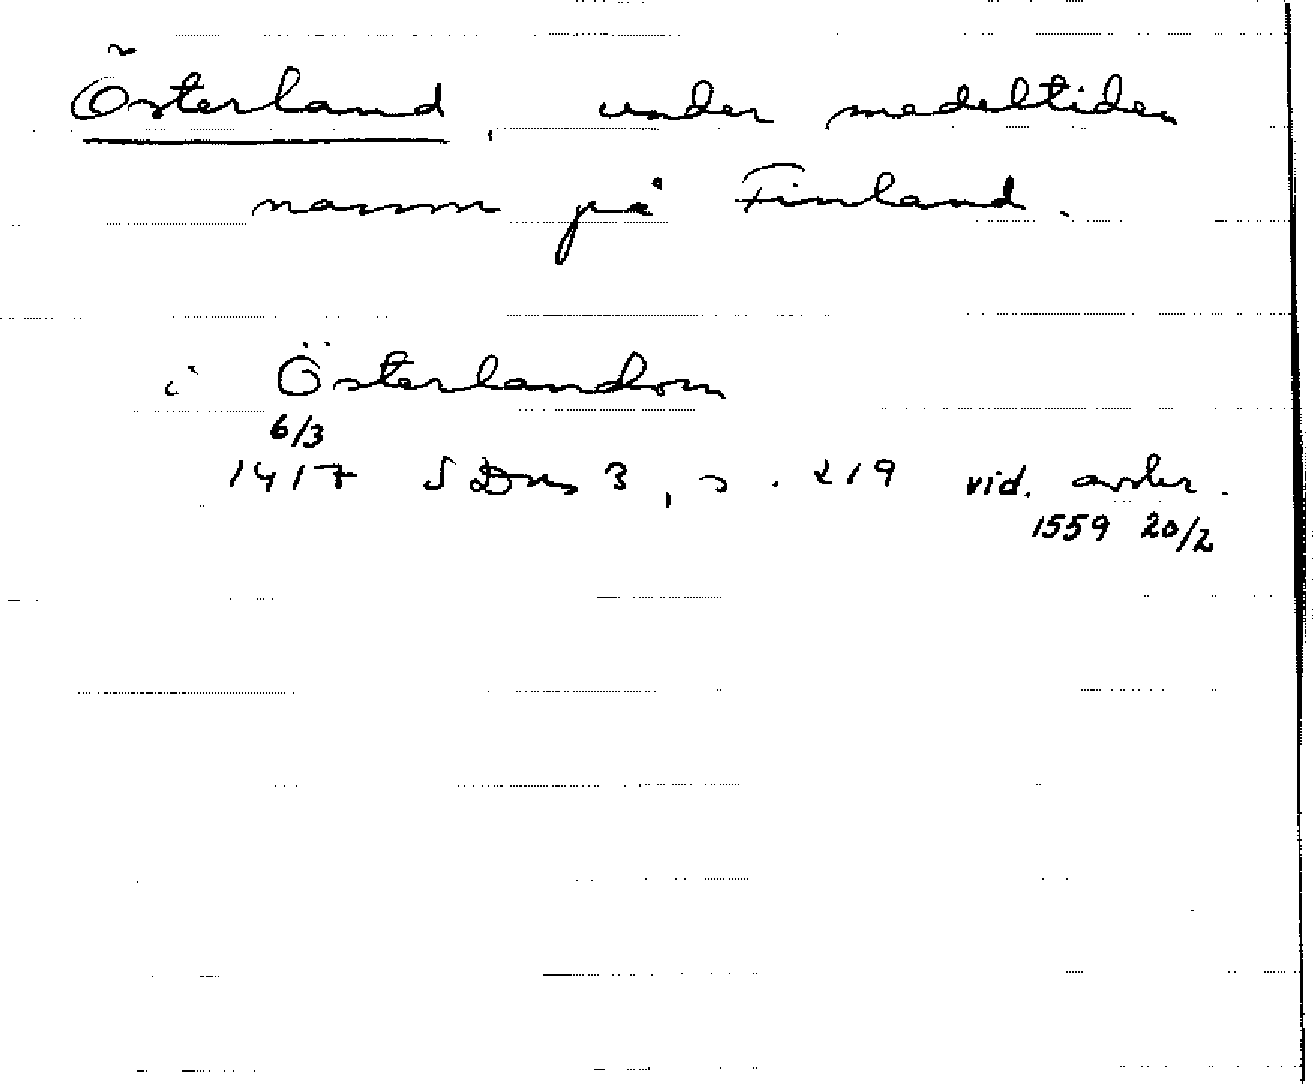 Österland, under medeltiden
namn på Finland.
i Österlandom
6/3
1417 SDns 3, s. 219 vid. avskr.
1559 20/2